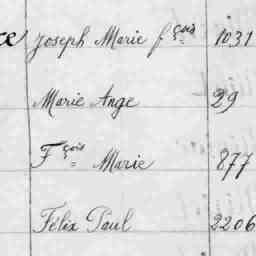 ce Joseph Marie fçois 1031
Marie Ange 29
Fçois Marie 877
Félix Paul 2206